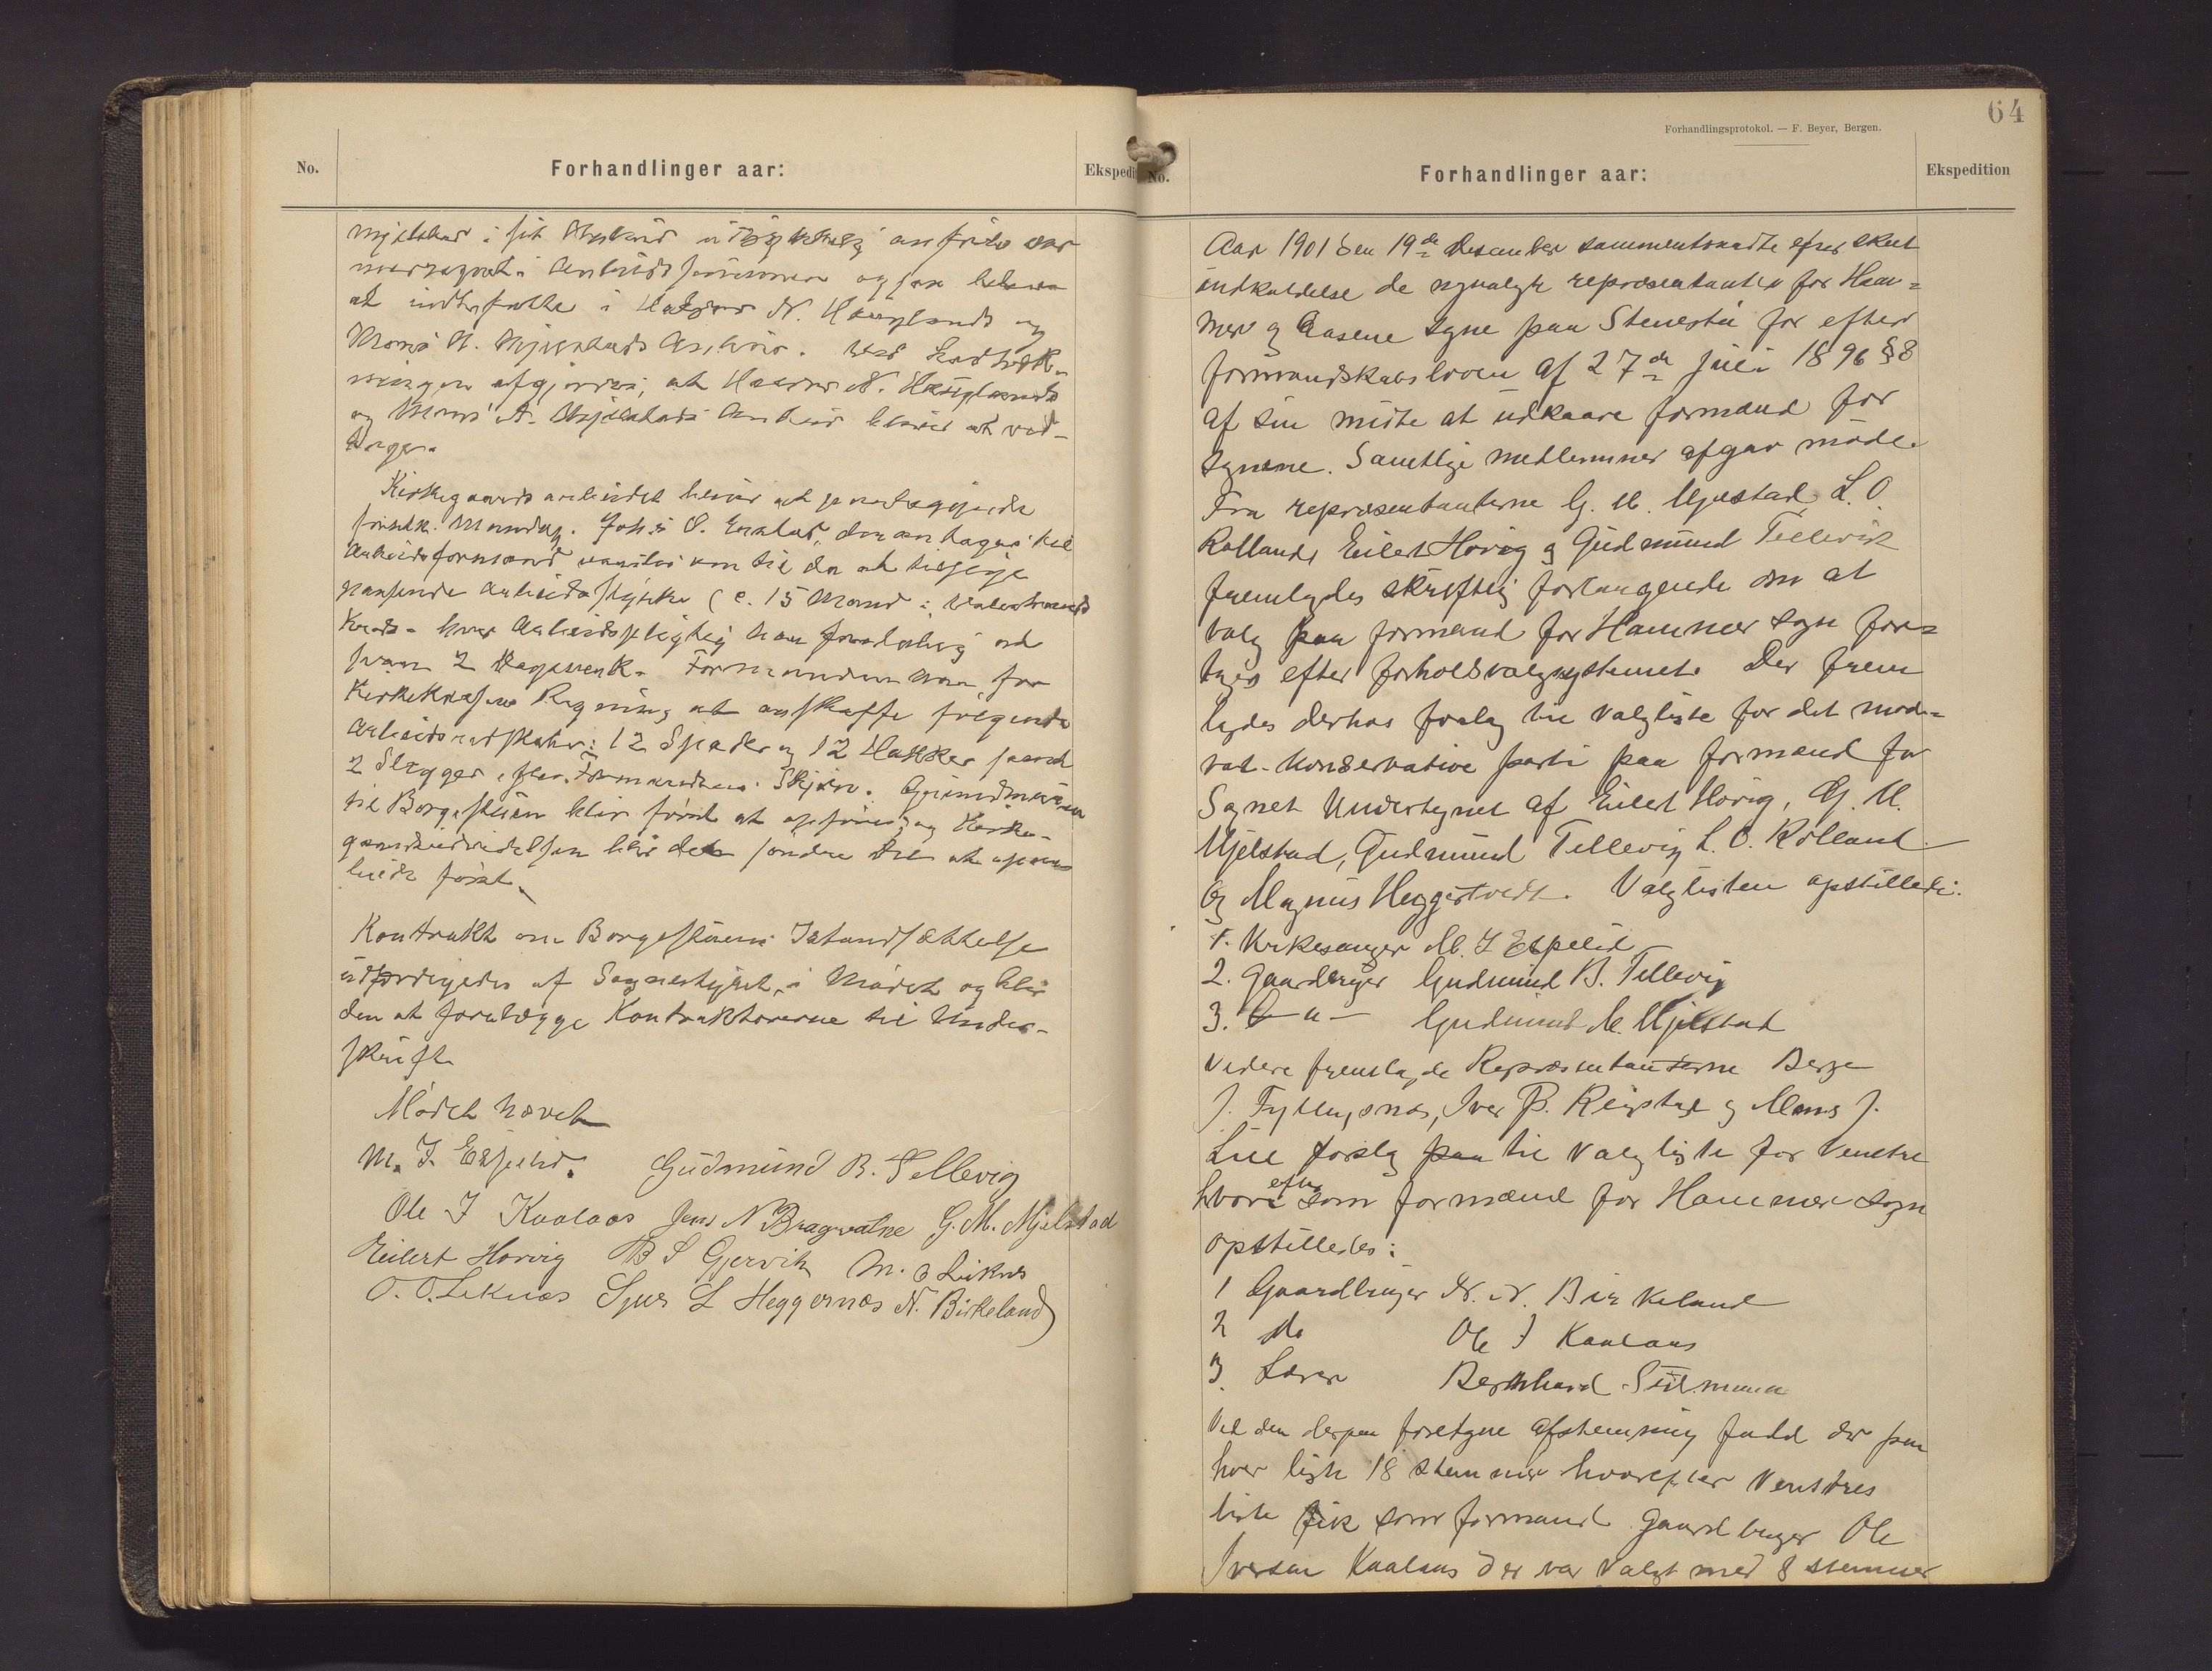 No.
Forhandlinger aar:
Ekspedit
i sit
i Arbeidssummen og
at indtrykke i N. Hauglands og
Mons A. Mjelstads Anførs. Ved
afgjordes, at N. Hauglands
og Mons A. Mjelstads blir at ved-
tage.
Kirkegaards arbeidet blir at paabegynde
førstk. Mandag. Johs O. der antages til
Arbeidsformand til da at tilsige
passende Arbeidsstyrke (c. 15 Mand i
Kreds. hver Arbeidspligtig at
2 Dagsverk. Formanden for
Kirkekassens Regning at anskaffe følgende
Arbeidsredskaber: 12 Spader og 12 Hakker samt
2 Slegger, Formandens Skjøn. Grundmuren
til Borgestuen blir først at opføres, og Kirke-
gaardsudvidelsen blir den søndre Del at
først.
Kontrakt om Borgestuens Istandsættelse
udfærdigedes af Sognestyret i Mødet og blir
den at forelægge Kontraktørerne til Under-
skrift
Mødet hævet
M. J. Espelid. Gudmund B. Tellevig
Ole I Kaalaas Jens N Bragvatne G. M. Mjelstad
Eilert Horvig B S Gjervik M. O Leiknes
O. O. Leknæs Sjur L Heggernæs N. Birkeland
64
Forhandlingsprotokol. — F. Beyer, Bergen.
No.
Forhandlinger aar:
Ekspedition
Aar 1901 den 19de Desember sammentraadte efter skeet
indkaldelse de nyvalgte repræsentanter for Ham-
mer og Aasene sogne paa Stenestø for efter
formandskabsloven af 27de Juli 1896 § 8
af sin midte at udkaare formænd for
sognene. Samtlige medlemmer afgav møde.
Fra repræsentanterne G. M. Mjelstad L. O.
Rolland, Eilert Horvig og Gudmund Tellevik
fremlagdes skriftlig forlangende om at
valg paa formænd for Hammer sogn fore-
tages efter forholdsvalgsystemet. Der frem
lagdes derhos forslag til valgliste for det mode-
rat-konservative parti paa formænd for
Sognet undertegnet af Eilert Horvig, G. M.
Mjelstad, Gudmund Tellevig L. O. Rolland
og Magnus Heggertvedt. Valglisten opstillede:
1. Kirkesanger M. J Espelid
2. Gaardbruger Gudmund B. Tellevig
3. — " — Gudmund M. Mjelstad
Videre fremlagde Repræsentanterne Berge
J. Fyllingsnæs, Iver P. Reigstad og Mons J.
Lie forslag paa til valgliste for Venstre
hvorefter som formænd for Hammer sogn
opstilledes:
1 Gaardbruger N. N. Birkeland
2 do Ole I Kaalaas
3. Lærer Bernhard Stülmann
Ved den derpaa foretagne afstemning faldt der paa
hver liste 18 stemmer hvorefter Venstres
liste fik som formænd gaardbruger Ole
Iversen Kaalaas der var valgt med 8 stemmer